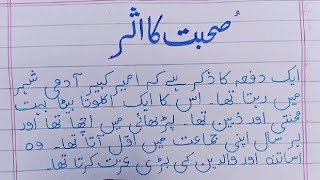 صحبت کا اثر
ایک دفعہ کا ذکر ہے کہ امیر کبیر آدمی شہر
میں رہتا تھا۔ اس کا ایک اکلوتا بیٹا بہت
محنتی اور ذہین تھا۔ پڑھائی میں اچھا تھا اور
ہر سال اپنی جماعت میں اوّل آتا تھا۔ وہ
اساتذہ اور والدین کی بڑی عزت کرتا تھا۔